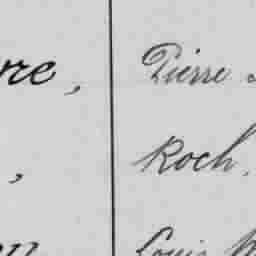 re, Pierre
, Roch.
Louis